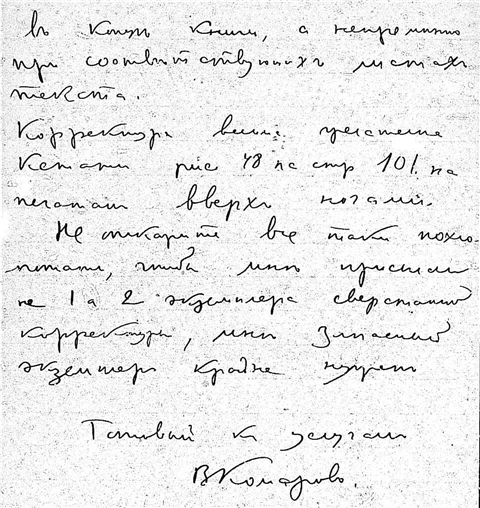 въ концѣ книги, а непремѣнно
при соотвѣтствующихъ мѣстахъ
текста.
Корректура была
Кстати рис 48 на стр 101 на
печатан вверхъ ногами.
Не откажите все таки похло-
потать, чтобы мнѣ прислали
не 1 а 2 экземпляра сверстанной
корректуры, мнѣ запасный
экземпляръ крайне нуженъ
Готовый къ услугам
ВКомаровъ.